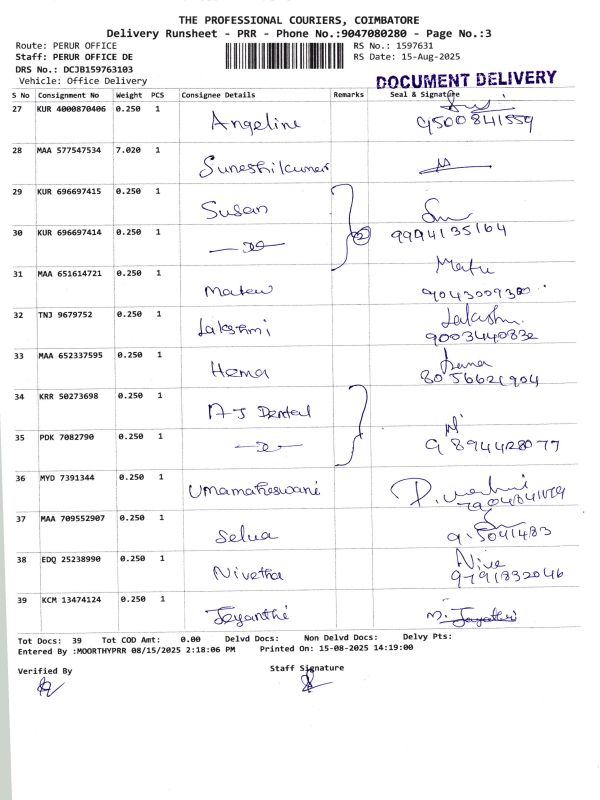 THE PROFESSIONAL COURIERS, COIMBATORE
Delivery Runsheet - PRR - Phone No.:9047080280 - Page No.:3
Route: PERUR OFFICE
RS No.: 1597631
Staff: PERUR OFFICE DE
RS Date: 15-Aug-2025
DRS No.: DCJB159763103
Vehicle: Office Delivery
DOCUMENT DELIVERY
S No Consignment No Weight PCS Consignee Details Remarks Seal & Signature
27 KUR 4000870406 0.250 1 Angeline 9500841559
28 MAA 577547534 7.020 1
29 KUR 696697415 0.250 1 Susan
30 KUR 696697414 0.250 1 2 9994135164
31 MAA 651614721 0.250 1 Mathew
32 TNJ 9679752 0.250 1 Lakshmi Lakshmi
9003440832
33 MAA 652337595 0.250 1 Hema Hema
8056621904
34 KRR 50273698 0.250 1 A J Dental
35 PDK 7082790 0.250 1 9894428077
36 MYD 7391344 0.250 1 Umamaheswari
37 MAA 709552907 0.250 1 Selva
38 EDQ 25238990 0.250 1 Nivetha Nive
9791832046
39 KCM 13474124 0.250 1 Jeyanthi
Tot Docs: 39 Tot COD Amt: 0.00 Delvd Docs: Non Delvd Docs: Delvy Pts:
Entered By :MOORTHYPRR 08/15/2025 2:18:06 PM Printed On: 15-08-2025 14:19:00
Verified By Staff Signature